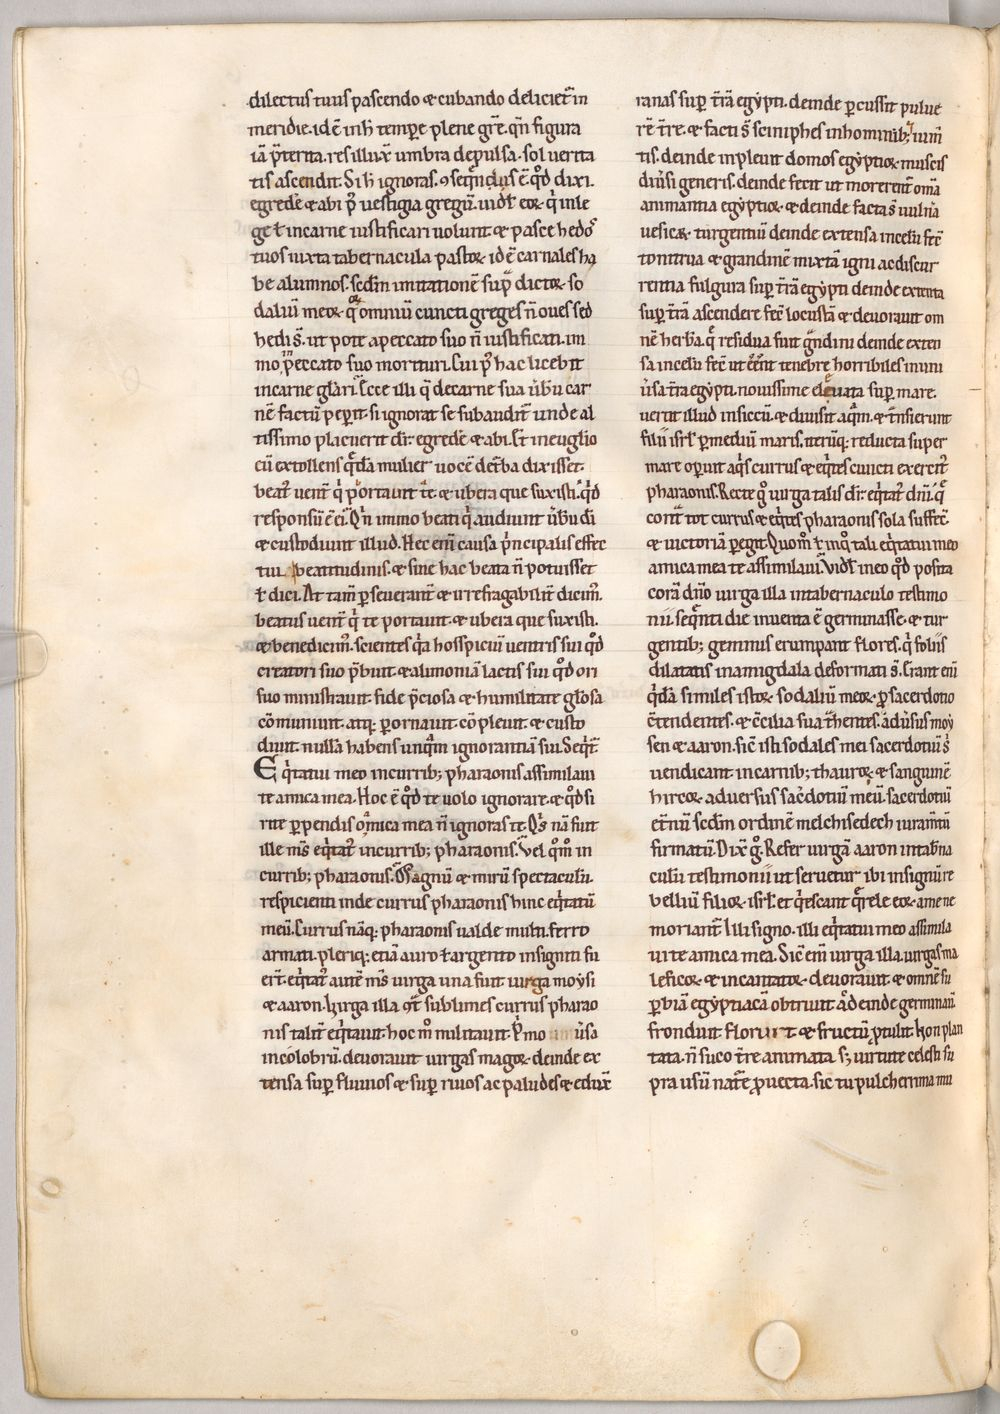 dilectus tuus pascendo & cubando deliciet͛ in
meridie. id ē in h̄ tempr̄e plene gr̄e. qn̄ figura
iā p̄terita. res illux̄. umbra depulsa. sol uerita
tis ascendit. Si h̄ ignoras. ꝯseq̄ndus ē. qd̄ dixi.
egredē & abi p̾ uestigia gregū. uidꝫ eoꝝ qui in le
ge ł in carne iustificari uolunt & pasce hedos
tuos iuxta tabernacula pastoꝝ. id ē carnales ha
be alumnos. scd̄m imitationē sup̄ dictoꝝ so
daliū meoꝝ. qm̄ omniū cuncti greges n̄ oues sed
hedi s̄. ut pote a peccato suo n̄ iustificati. im
mo ī peccato suo mortui. Cui p̾ hac licebit
in carne gl̄ari. Ecce illi q̄ de carne sua u̾bū car
nē factū pep̄it. si ignorat se subaudit͛ unde al
tissimo placuerit dr̄. egredē & abi. Et in euglio
cū extollens q̄dā mulier uocē de t̾ba dixisset.
beat᷒ uent̾ qi portauit te. & ubera que suxisti. qd̄
responsū ē ei. Qin immo beati qi audiunt u̾bū di
& custodiunt illud. Hec eni causa pncipalis effec
tui beatitudinis. & sine hac beata n̄ potuisset
ł dici. At tam̄ perseuerant̾ & irrefragabilit̾ dicim᷒.
beatus uent̾ qi te portauit & ubera que suxisti.
& benedicim᷒. scientes q̄a hosspiciū uentris sui qd̄
creatori suo p̄buit & alimoniā lactis sui qd̄ ori
suo ministrauit. fide p̄ciosa & humilitate gl̄osa
cōmuniuit. atq; perornauit. cōpleuit. & custo
diuit. nullā habens unq̄m ignorantiā sui. Seqt͛
Eqitatui meo in currib; pharaonis assimilaui
te amica mea. Hoc ē qd̄ te uolo ignorare. & qd̄ si
rite perpendis o amica mea n̄ ignoras te. Qis nā fuit
ille ms̄ eqitat᷒ in currib; pharaonis. Vel qm̄ in
currib; pharaonis. Magnū & mirū spectaculū
respicienti inde currus pharaonis hinc eqitatū
meū. Currus nāq; pharaonis ualde multi. ferro
armati. pleriq; etiā auro ł argento insigniti fu
er̄t. eqitat᷒ autē ms̄ uirga una fuit uirga moysi
& aaron. Virga illa ꝯt̾ sublimes currus pharao
nis talit̾ eqitauit. hoc mo militauit. Pimo u̾sa
in colobrū. deuorauit uirgas magoꝝ. deinde ex
tensa sup̄ fluuios & sup̄ riuos ac paludes & edux̄
ranas sup̄ t̾rā egypti. deinde percussit pulue
rē t̾re. & facti s̄ sciniphes in hominib; & ium̄
tis. deinde inpleuit domos egyptioꝝ muscis
diu̾si generis. deinde fecit ut morerent͛ om̄a
animantia egyptioꝝ. & deinde facta s̄ uuln̾a
uesicaꝝ turgentiū deinde extensa in celū fec̄
tonitrua & grandinē mixtā igni ac discur
rentia fulgura sup̄ t̾rā egypti deinde extenta
sup̄ t̾rā ascendere fec̄ locustā & deuorauit om
nē herbā. q̄ residua fuit gͣndini deinde exten
sa in celū fec̄ ut eēnt tenebre horribiles in uni
u̾sa t̾ra egypti. nouissime eleuata sup̄ mare.
uertit illud in siccū. & diuisit aq̄m. & tͣnsierunt
filii isrl̄ per mediū maris. iterūq; reducta super
mare operuit aq̄s currus & eqites cuncti exercit᷒
pharaonis. Recte gͦ uirga talis dr̄. eqitat᷒ dni. q̄
cont̾ tot currus & eqites pharaonis sola suffec̄.
& uictoriā peregit. Quom̄ ł inqͦ tali eqitatui meo
amica mea te assimilaui. Vidꝫ in eo qd̄ posita
corā dn̄o uirga illa in tabernaculo testimo
nii seq̄nti die inuenta ē germinasse. & tur
gentib; gemmis erumpant flores. qi foliis
dilatatis in amigdala deformati s̄. Erant eni
q̄dā similes istoꝝ sodaliū meoꝝ. ꝓ sacerdotio
ꝯtendentes. & ꝯcilia sua t̾hentes. adu̾sus moy
sen & aaron. sic̄ isti sodales mei sacerdotiū s̾
uendicant in carnib; thauroꝝ & sanguine
hircoꝝ aduersus sac̾dotiū meū. sacerdotiū
et̾nū scd̄m ordinē melchisedech iuram̄tū
firmatū. Dix̄ gͦ. Refer uirgā aaron in tab̾na
culū testimonii ut seruetur ibi in signū re
belliū filioꝝ isrl̄. et qiescant q̄rele eoꝝ. a me ne
moriant͛. Illi signo. illi eqitatui meo assimila
ui te amica mea. Sic̄ em̄ uirga illa. uirgas ma
leficoꝝ & incantatoꝝ deuorauit & omnē su
perbiā egyptiacā obtriuit. ac̄ deinde germinauit
fronduit floruit & fructū ꝓtulit. Non plan
tata. n̄ suco t̾re animata. s; uirtute celesti su
pra usū nat͛e ꝓuecta. sic tu pulcherrima mu